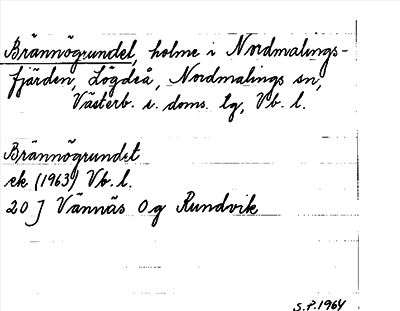 Brännögrundel, holme i Nordmalings-
fjärden, Lögdeå, Nordmalings sn,
Västerb. s. doms. lg, Vb. l.
Brännögrundet
ek (1963) Vb. l.
20 J Vännäs Og Rundvik
S.P. 1964